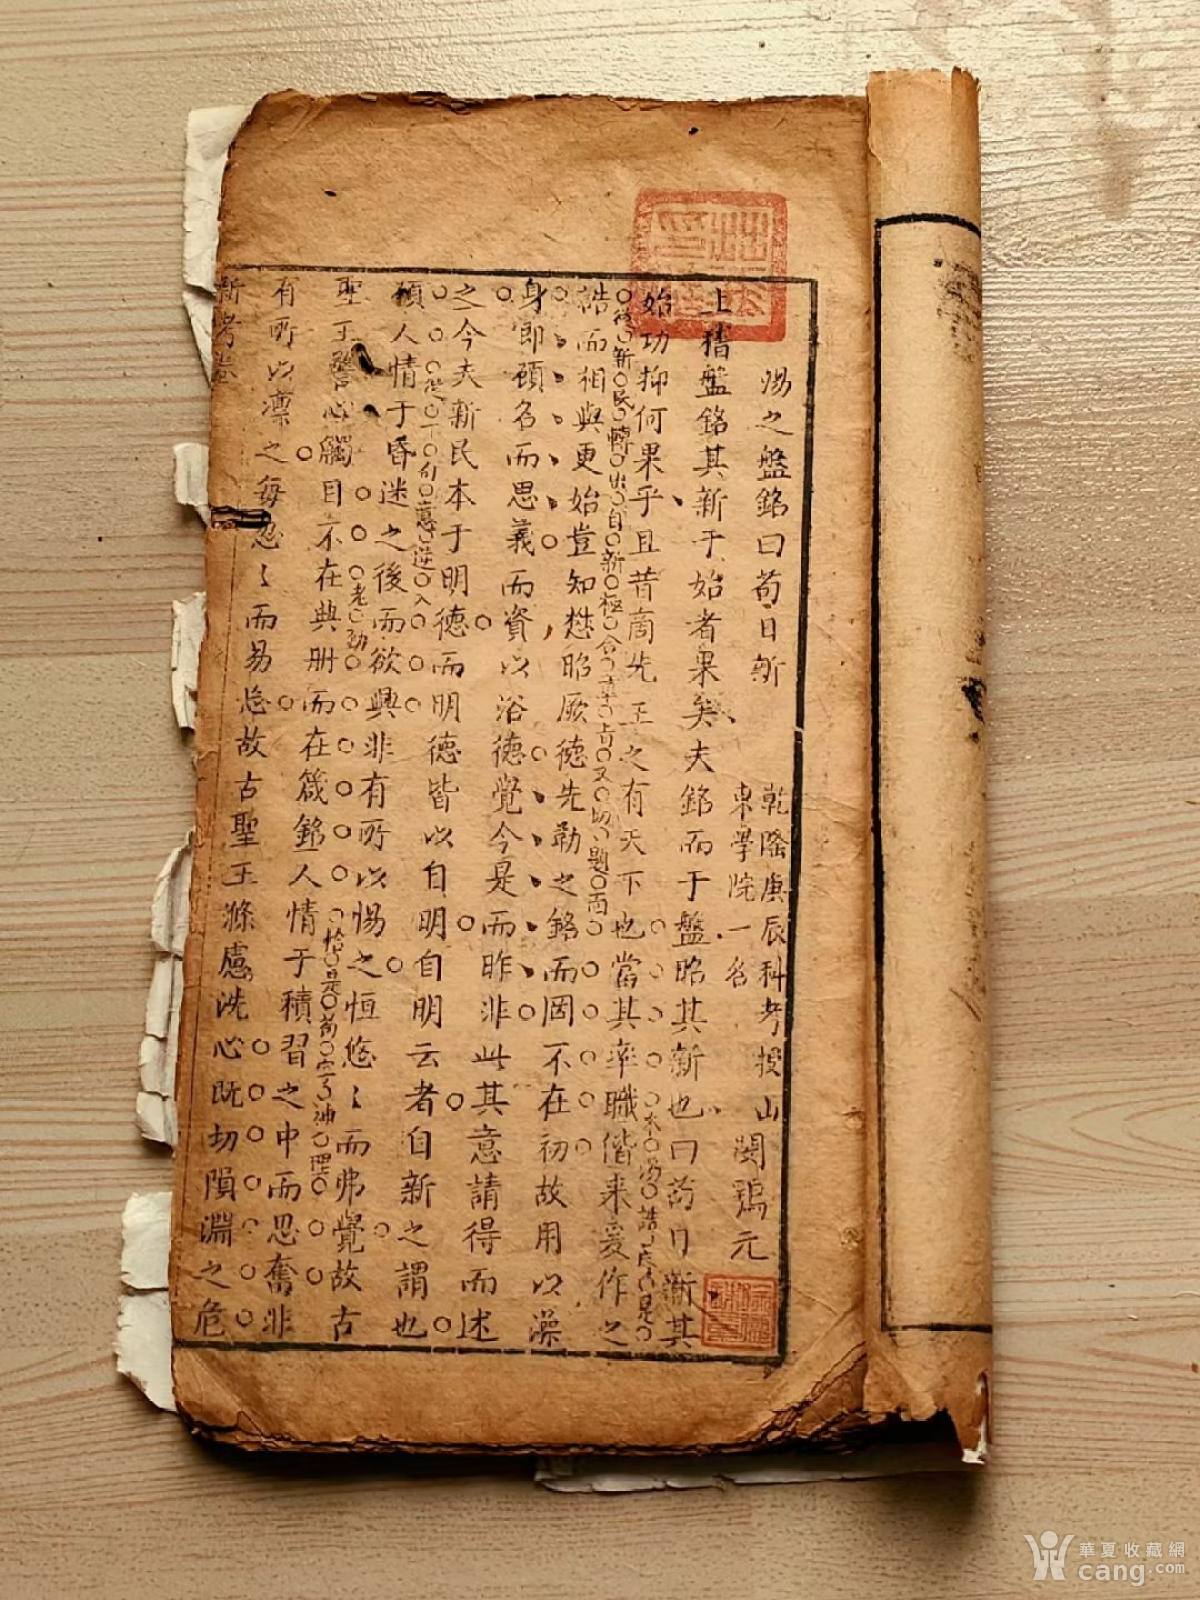 湯之盤銘曰苟日新
乾隆庚辰科考授山
東學院一名
閔鶚元
上稽盤銘其新于始者果矣夫銘而于盤昭其新也曰苟日新其
始功抑何果乎且昔商先王之有天下也當其率職偕来爰作之
誥而相與更始豈知懋昭厥德先勒之銘而罔不在初故用以澡
身即顧名而思義而資以浴德覺今是而昨非此其意請得而述
之今夫新民本于明德而明德皆以自明自明云者自新之謂也
頋人情于昏迷之後而欲興非有所以惕之恒悠〻而弗覺故古
聖王警心觸目不在典册而在箴銘人情于積習之中而思奮非
有所以凛之每忽〻而易怠故古聖王滌慮洗心既切隕淵之危
新考卷
從新民轉出自新極合章旨又切題面
老勁
恰是苟字神理
華夏收藏網
cang.com